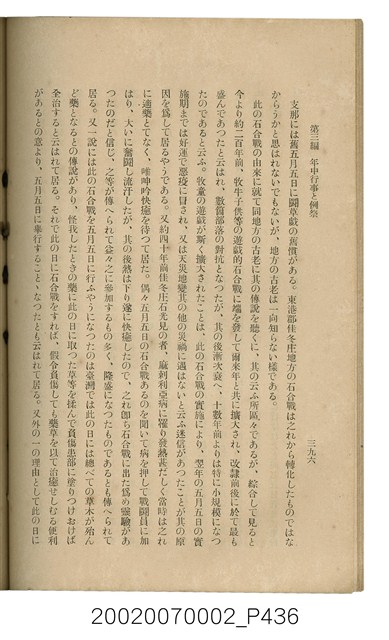 第三編 年中行事と例祭
三九六
支那には舊五月五日に鬪草戲の舊慣がある。東港郡佳冬庄地方の石合戰は之れから轉化したものではな
からうかと思はれないでもないが、地方の古老は一向知らない樣である。
此の石合戰の由來に就て同地方の古老に其の傳說を聽くに、其の云ふ所區々であるが、綜合して見ると
今より約二百年前、牧牛子供等の遊戲的石合戰に端を發して爾來年と共に擴大され、改隸前後に於て最も
盛んであつたと云はれ、數箇部落の對抗となつたが、其の後漸次衰へ、十數年前よりは特に小規模になつ
たのであると云ふ。牧童の遊戲が斯く擴大されたことは、此の石合戰の實施により、翌年の五月五日の實
施期までは好運で惡疫に冒され、又は天災地變其の他の災禍に遇はないと云ふ迷信があつたことが其の原
因を爲して居るやうである。又約四十年前佳冬庄石光見の者、麻剌利亞病に罹り發熱甚だしく當時は之れ
に適藥とてなく、唯呻吟快癒を待つて居た。偶々五月五日の石合戰あるのを聞いて病を押して戰鬪員に加
はり、大いに奮鬪し流汗したが、其の後熱は下り遂に快癒したので、之れ卽ち石合戰に出た爲め靈驗があ
つたのだと信じ、之等が傳へられて益々之に參加するもの多く、隆盛になつたものであるとも傳へられて
居る。又一說には此の石合戰を五月五日に行ふやうになつたのは臺灣では此の日には總べての草木が殆ん
ど藥となるとの傳說があり、怪我したときの藥に此の日に取つた草等を揉んで負傷患部に塗りつけおけば
全治すると云はれて居る。それで此の日に石合戰をすれば、假令負傷しても藥草を以て治癒せしむる便利
があるとの意より、五月五日に擧行すること、なつたとも云はれて居る。又外の一の理由として此の日に
20020070002_P436